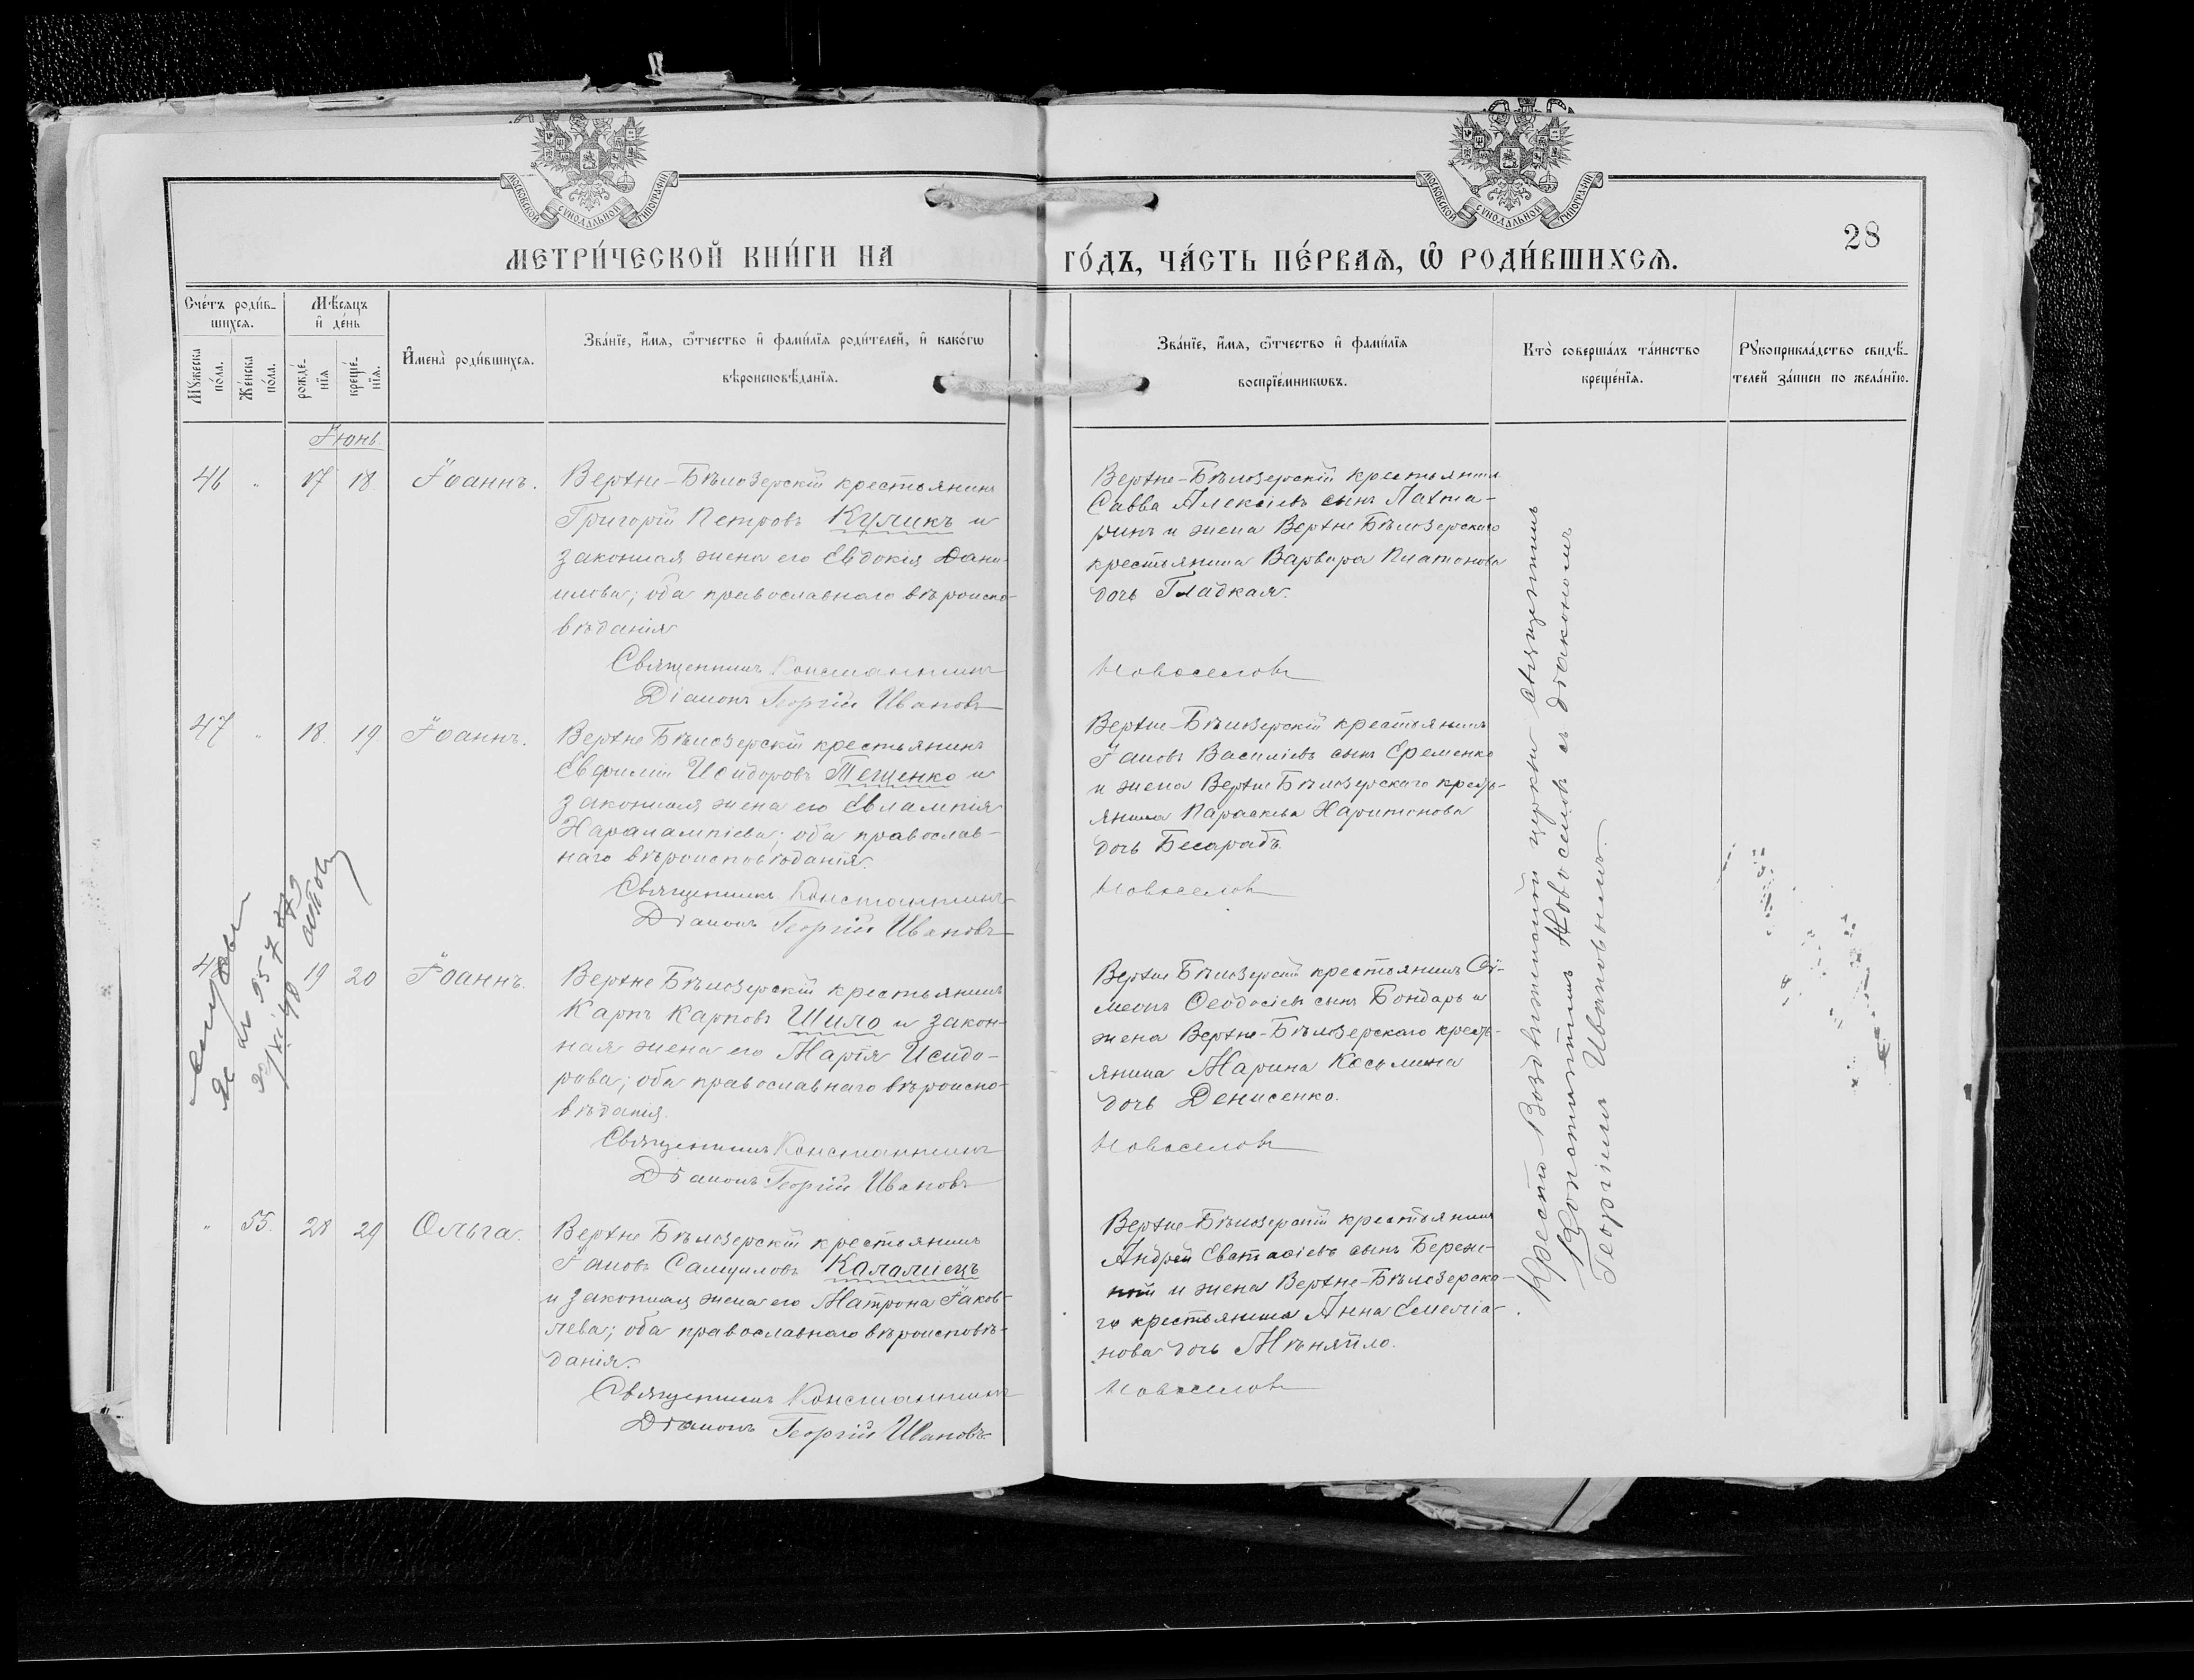 МОСКОВСКОЙ СУНОДАЛЬНОЙ ТИПОГРАФІИ
МОСКОВСКОЙ СУНОДАЛЬНОЙ ТИПОГРАФІИ
28
МЕТРИ́ЧЕСКОЙ КНИ́ГИ НА ГО́ДЪ, ЧА́СТЬ ПЕ́РВАѦ, Ѡ҆ РОДИ́ВШИХСѦ.
Сче́тъ роди́в-
шихсѧ.
Мꙋжеска по́ла.
Же́нска по́ла.
Мѣ́сяцъ
и҆ де́нь
рожде́-
нїѧ
креще́-
нїѧ.
И҆мена̀ роди́вшихсѧ.
Зва́нїе, и҆́мѧ, ѻ҆́тчество и҆ фами́лїѧ роди́телей, и҆ како́гѡ
вѣроисповѣ́данїѧ.
Зва́нїе, и҆́мѧ, ѻ҆́тчество и҆ фами́лїѧ
воспрїе́мникѡвъ.
Кто̀ соверша́лъ та́инство
креще́нїѧ.
Рꙋкоприкла́дство свидѣ́-
телей за́писи по жела́нїю.
Іюнь
46 " 17 18. Іоаннъ.
Верхне-Бѣлозерскій крестьянинъ
Григорій Петровъ Куликъ и
законная жена его Евдокія Дани-
илова; оба православнаго вѣроиспо-
вѣданія
Священникъ Константинъ
Діаконъ Георгій Ивановъ
Верхне-Бѣлозерскій крестьянинъ
Савва Алексіевъ сынъ Лахма-
и жена Верхне Бѣлозерскаго
крестьянина Варвара Платонова
дочь Гладкая.
Новоселовъ
47 " 18. 19 Іоаннъ.
Верхне Бѣлозерскій крестьянинъ
Евфимій Исидоровъ Тещенко и
законная жена его Евлампія
Харалампіева; оба православ-
наго вѣроисповѣданія.
Священникъ Константинъ
Діаконъ Георгій Ивановъ
Верхне-Бѣлозерскій крестьянинъ
Іаковъ Василіевъ сынъ Еременко
и жена Верхне Бѣлозерскаго кресть-
янина Параскева Харитонова
дочь Бесарабъ.
Новоселовъ
19 20 Іоаннъ.
Верхне Бѣлозерскій крестьянинъ
Карпъ Карповъ Шило и закон-
ная жена его Марія Исидо-
рова; оба православнаго вѣроиспо-
вѣданія.
Священникъ Константинъ
Діаконъ Георгій Ивановъ
Верхне Бѣлозерскій крестьянинъ Си-
меонъ Ѳеодосіевъ сынъ Бондарь и
жена Верхне-Бѣлозерскаго кресть-
янина Марина Косьмина
дочь Денисенко.
Новоселовъ
" 55. 28 29 Ольга.
Верхне Бѣлозерскій крестьянинъ
Іаковъ Самуиловъ Коломіецъ
и законная жена его Матрона Іаков-
лева; оба православнаго вѣроисповѣ-
данія.
Священникъ Константинъ
Діаконъ Георгій Ивановъ
Верхне-Бѣлозерскій крестьянинъ
Андрей Евстафіевъ сынъ Береж-
ной и жена Верхне-Бѣлозерска-
го крестьянина Анна Емеліа-
нова дочь Мѣняйло.
Новоселовъ
Кресто-Воздвиженской церкви священникъ
Константинъ Новоселовъ съ діакономъ
Георгіемъ Ивановымъ.